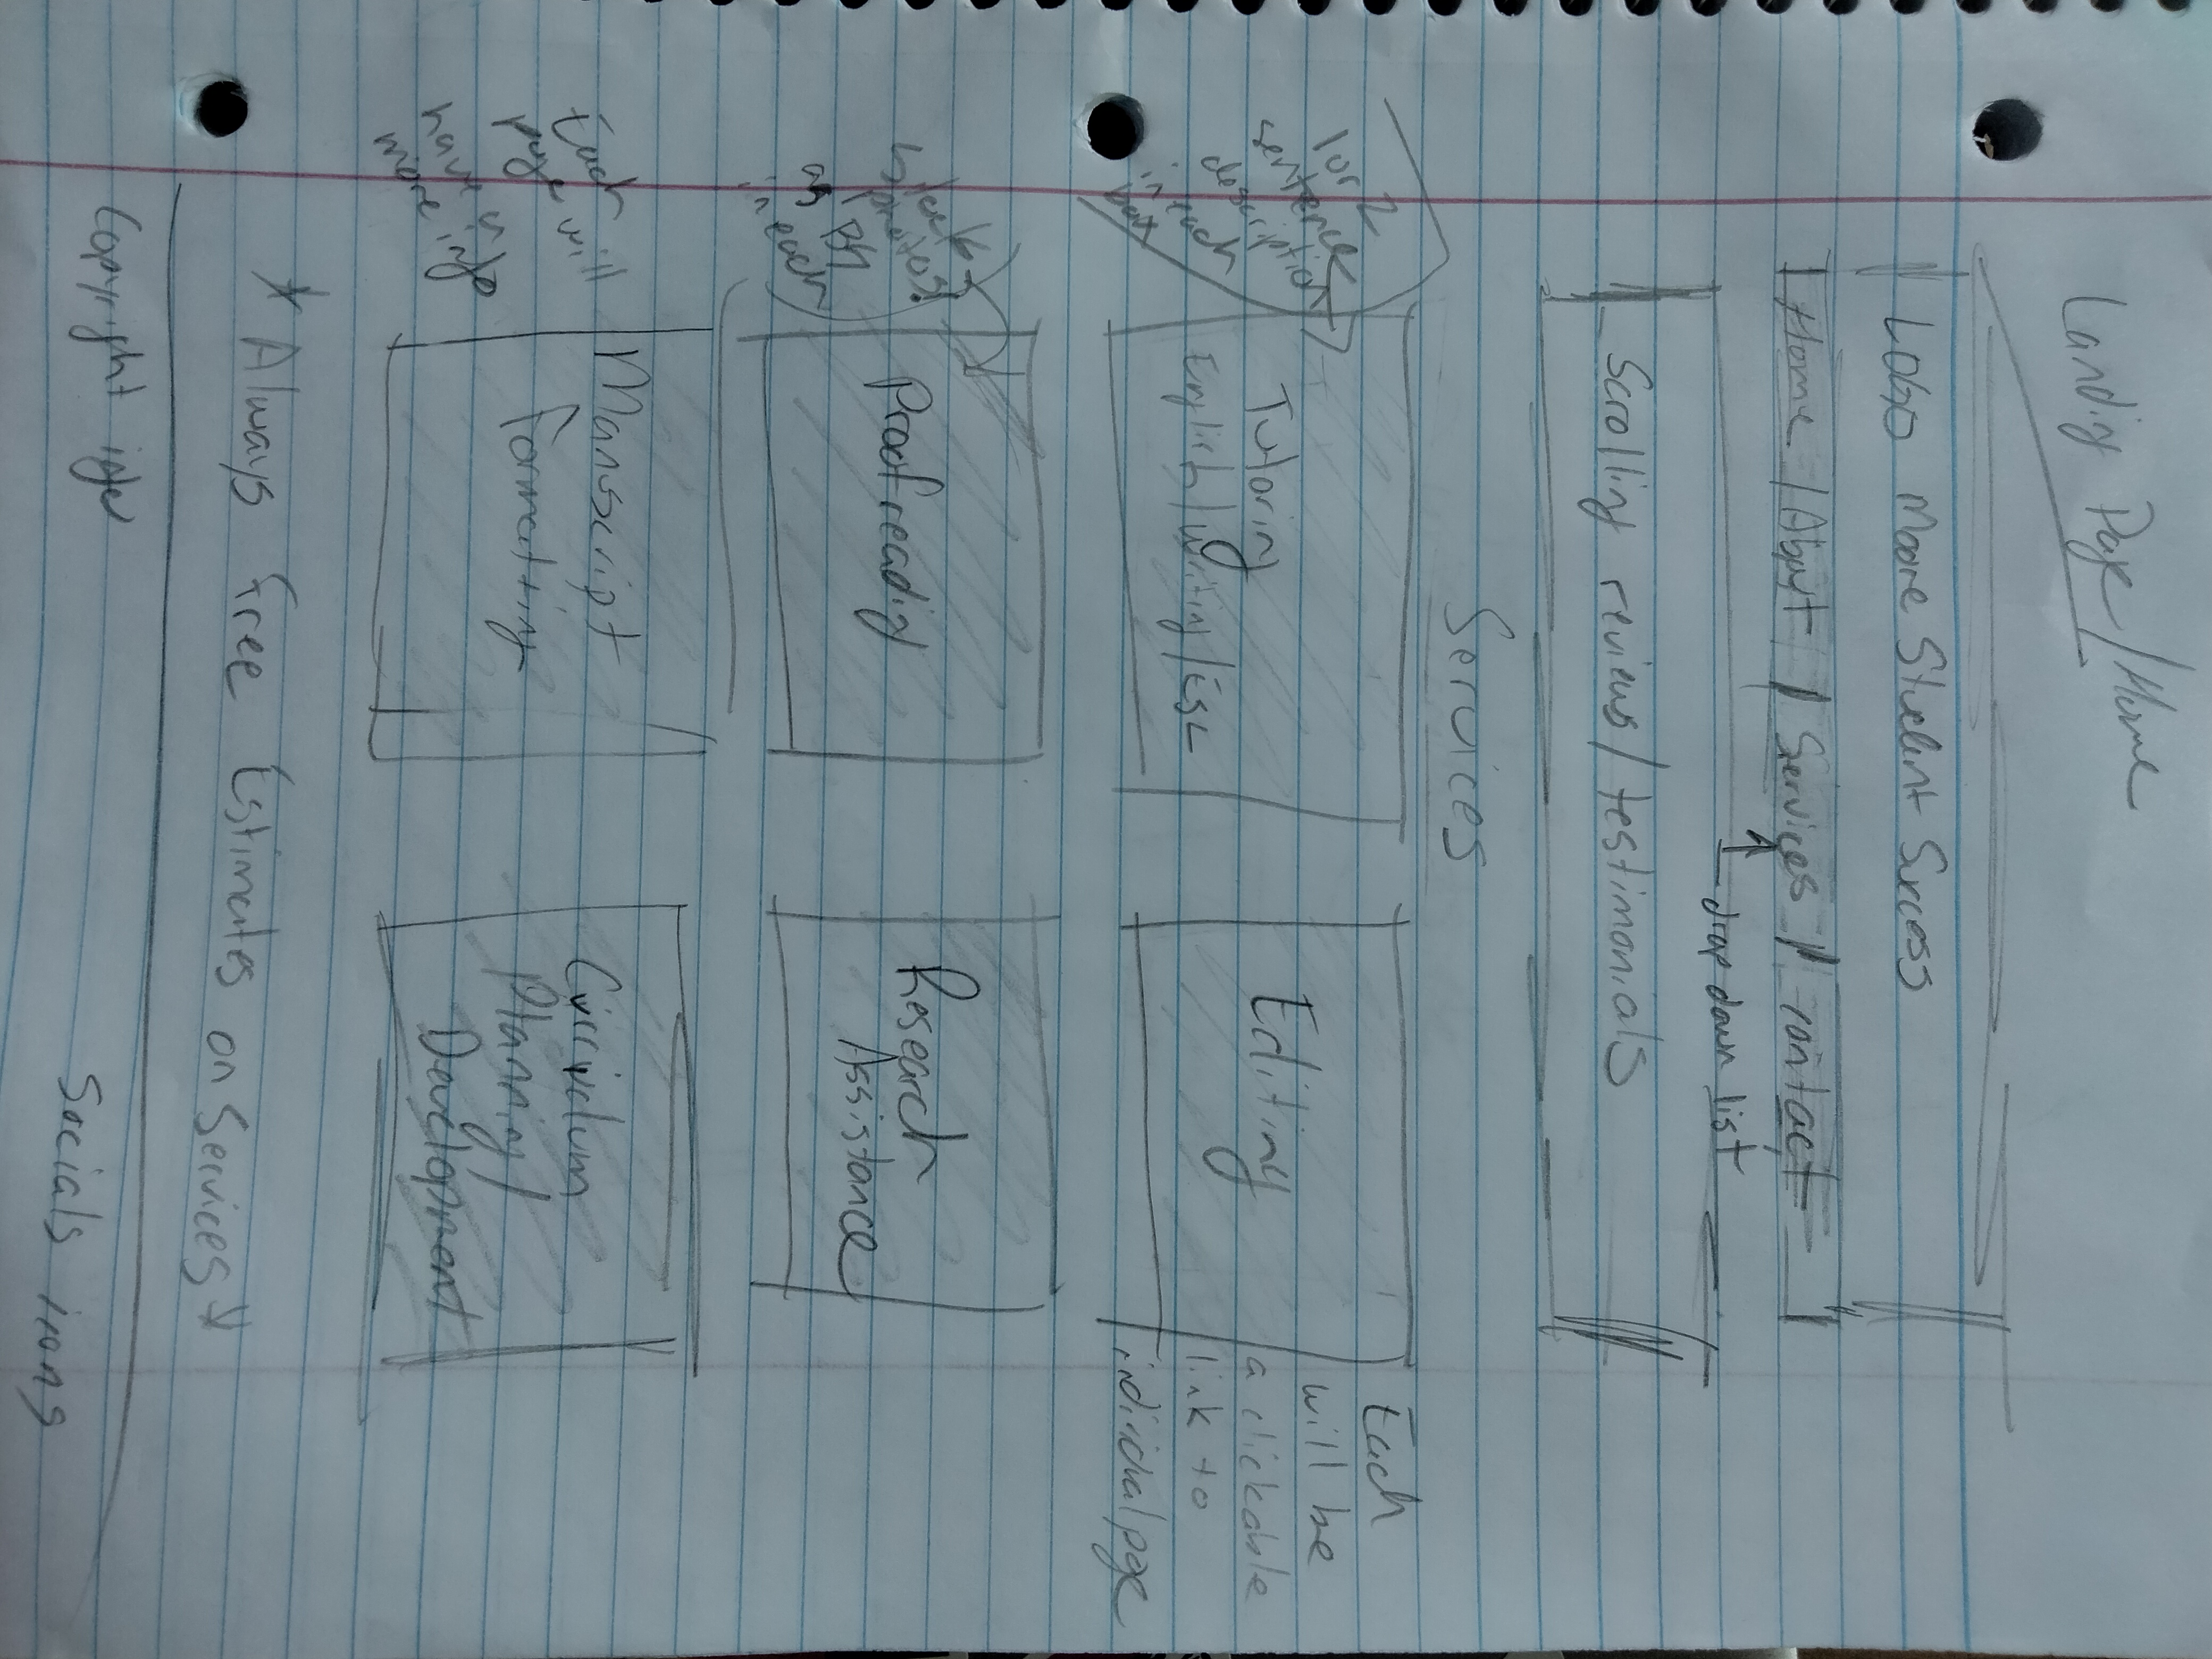 Landing Page/Home
LOGO Moore Student Success
Home / About / Services / contact
drop down list
Scrolling reviews/testimonials
Services
1 or 2
sentence
description
in each
box
Tutoring
English/Writing/ESL
Editing
Each
will be
a clickable
link to
individual page
Stock
photos!
as BG
in each
Proofreading
Research
Assistance
Each
page will
have
more info
Manuscript
Formatting
Curriculum
Planning/
Development
* Always Free Estimates on Services *
Copyright info
Socials icons